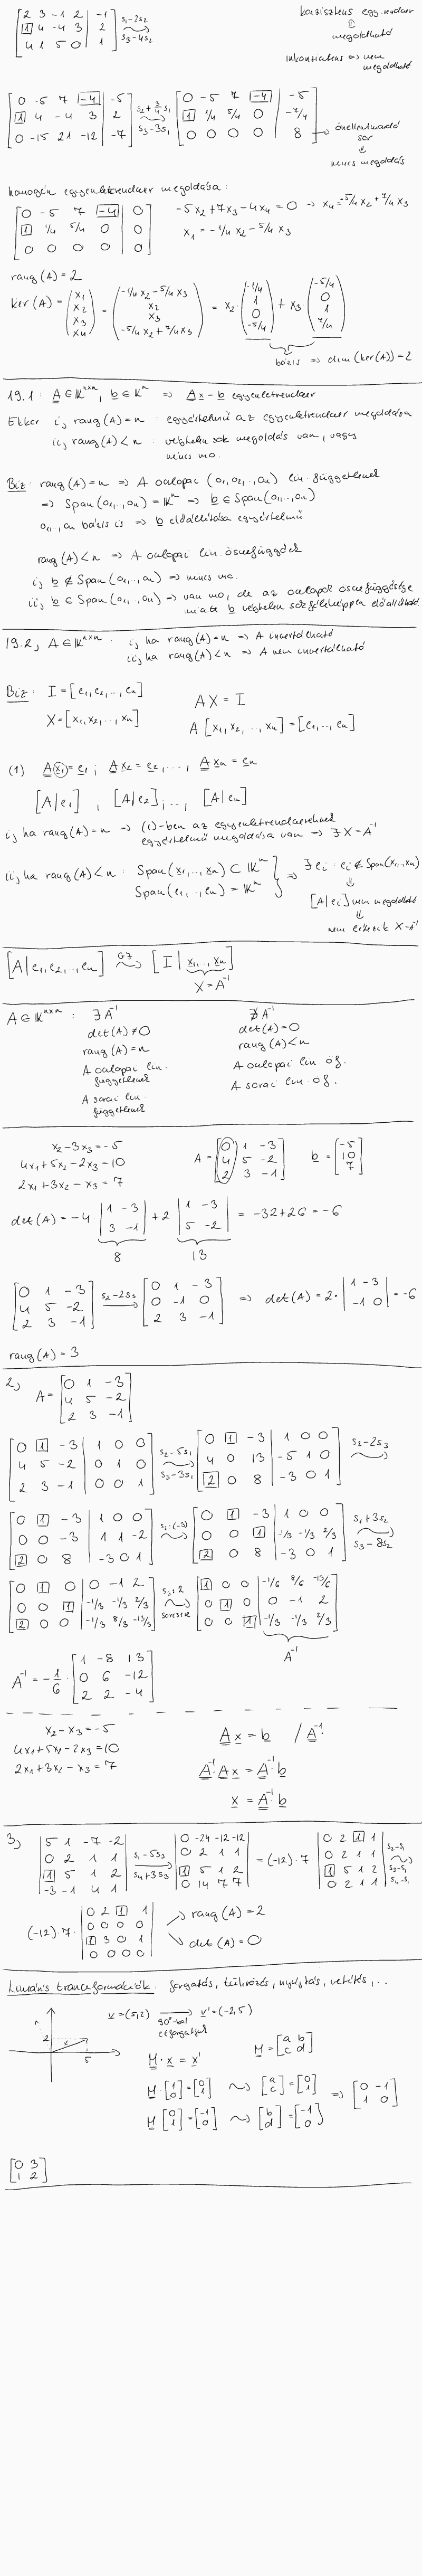 [2 3 -1 2 | -1; 1 4 -4 3 | 2; 4 1 5 0 | 1] s₁-2s₂ s₃-4s₂
konzisztens egy. rendszer
⇕
megoldható
inkonzisztens ⇔ nem megoldható
[0 -5 7 -4 | -5; 1 4 -4 3 | 2; 0 -15 21 -12 | -7] s₂+¾s₁ s₃-3s₁ [0 -5 7 -4 | -5; 1 1/4 5/4 0 | -7/4; 0 0 0 0 | 8] → önellentmondó sor
⇓
nincs megoldás
homogén egyenletrendszer megoldása:
[0 -5 7 -4 | 0; 1 1/4 5/4 0 | 0; 0 0 0 0 | 0] -5x₂+7x₃-4x₄=0 → x₄=-5/4x₂+7/4x₃
x₁=-1/4x₂-5/4x₃
rang(A)=2
ker(A)=(x₁ x₂ x₃ x₄)=(-1/4x₂-5/4x₃; x₂; x₃; -5/4x₂+7/4x₃)=x₂·(-1/4; 1; 0; -5/4)+x₃(-5/4; 0; 1; 7/4)
bázis ⇒ dim(ker(A))=2
19.1: A∈K^(n×n), b∈K^n ⇒ Ax=b egyenletrendszer
Ekkor i, rang(A)=n : egyértelmű az egyenletrendszer megoldása
ii, rang(A)<n : végtelen sok megoldás van, vagy
nincs mo.
Biz: rang(A)=n ⇒ A oszlopai (a₁,a₂,..,aₙ) lin. függetlenek
⇒ Span(a₁,..,aₙ)=K^n ⇒ b∈Span(a₁,..,aₙ)
a₁,..,aₙ bázis is ⇒ b előállítása egyértelmű
rang(A)<n ⇒ A oszlopai lin. összefüggőek
i, b∉Span(a₁,..,aₙ) ⇒ nincs mo.
ii, b∈Span(a₁,..,aₙ) ⇒ van mo, de az oszlopok összefüggősége
miatt b végtelen sokféleképpen előállítható
19.2, A∈K^(n×n) i, ha rang(A)=n ⇒ A invertálható
ii, ha rang(A)<n ⇒ A nem invertálható
Biz: I=[e₁,e₂,..,eₙ] AX=I
X=[x₁,x₂,..,xₙ] A[x₁,x₂,..,xₙ]=[e₁,..,eₙ]
(1) Ax₁=e₁; Ax₂=e₂,..., Axₙ=eₙ
[A|e₁], [A|e₂],.., [A|eₙ]
i, ha rang(A)=n ⇒ (1)-ben az egyenletrendszereknek
egyértelmű megoldása van ⇒ ∃X=A⁻¹
ii, ha rang(A)<n: Span(x₁,..,xₙ)⊂K^n
Span(e₁,..,eₙ)=K^n } ⇒ ∃eᵢ: eᵢ∉Span(x₁,..,xₙ)
⇓
[A|eᵢ] nem megoldható
⇓
nem létezik X=A⁻¹
[A|e₁,e₂,..,eₙ] GJ [I|x₁,..,xₙ]
X=A⁻¹
A∈K^(n×n): ∃A⁻¹ ∄A⁻¹
det(A)≠0 det(A)=0
rang(A)=n rang(A)<n
A oszlopai lin. függetlenek A oszlopai lin. öf.
A sorai lin. függetlenek A sorai lin. öf.
x₂-3x₃=-5
4x₁+5x₂-2x₃=10
2x₁+3x₂-x₃=7
A=[0 1 -3; 4 5 -2; 2 3 -1] b=[-5; 10; 7]
det(A)=-4·|1 -3; 3 -1|+2|1 -3; 5 -2|=-32+26=-6
8 13
[0 1 -3; 4 5 -2; 2 3 -1] s₂-2s₃ [0 1 -3; 0 -1 0; 2 3 -1] ⇒ det(A)=2·|1 -3; -1 0|=-6
rang(A)=3
2, A=[0 1 -3; 4 5 -2; 2 3 -1]
[0 1 -3 | 1 0 0; 4 5 -2 | 0 1 0; 2 3 -1 | 0 0 1] s₂-5s₁ s₃-3s₁ [0 1 -3 | 1 0 0; 4 0 13 | -5 1 0; 2 0 8 | -3 0 1] s₂-2s₃
[0 1 -3 | 1 0 0; 0 0 -3 | 1 1 -2; 2 0 8 | -3 0 1] s₂:(-3) [0 1 -3 | 1 0 0; 0 0 1 | -1/3 -1/3 2/3; 2 0 8 | -3 0 1] s₁+3s₂ s₃-8s₂
[0 1 0 | 0 -1 2; 0 0 1 | -1/3 -1/3 2/3; 2 0 0 | -1/3 8/3 -13/3] s₃:2 sorcsere [1 0 0 | -1/6 8/6 -13/6; 0 1 0 | 0 -1 2; 0 0 1 | -1/3 -1/3 2/3]
A⁻¹
A⁻¹=-1/6[1 -8 13; 0 6 -12; 2 2 -4]
x₂-x₃=-5
4x₁+5x₂-2x₃=10
2x₁+3x₂-x₃=7
Ax=b /A⁻¹·
A⁻¹·Ax=A⁻¹·b
x=A⁻¹·b
3, |5 1 -7 -2; 0 2 1 1; 1 5 1 2; -3 -1 4 1| s₁-5s₃ s₄+3s₃ |0 -24 -12 -12; 0 2 1 1; 1 5 1 2; 0 14 7 7|=(-12)·7·|0 2 1 1; 0 2 1 1; 1 5 1 2; 0 2 1 1| s₂-s₁ s₃-s₁ s₄-s₁
(-12)·7·|0 2 1 1; 0 0 0 0; 1 3 0 1; 0 0 0 0| → rang(A)=2
→ det(A)=0
Lineáris transzformációk: forgatás, tükrözés, nyújtás, vetítés, ..
v=(5,2) → v'=(-2,5)
90°-kal elforgatjuk
2
5
M·x=x' M=[a b; c d]
M[1; 0]=[0; 1] ⇝ [a; c]=[0; 1]
M[0; 1]=[-1; 0] ⇝ [b; d]=[-1; 0] ⇒ [0 -1; 1 0]
[0 3; 1 2]